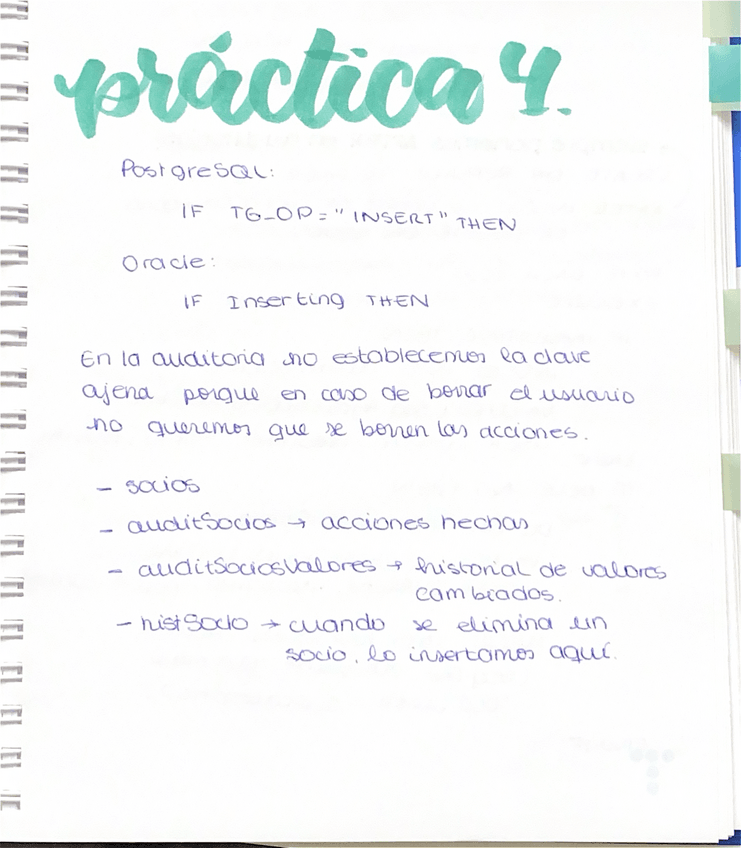 práctica 4.
PostgreSQL:
IF TG_OP = "INSERT" THEN
Oracle:
IF Inserting THEN
En la auditoria no establecemos la clave
ajena porque en caso de borrar el usuario
no queremos que se borren las acciones.
- socios
- auditSocios → acciones hechas
- auditSociosValores → historial de valores
cambiados.
- histSocio → cuando se elimina un
socio, lo insertamos aquí.